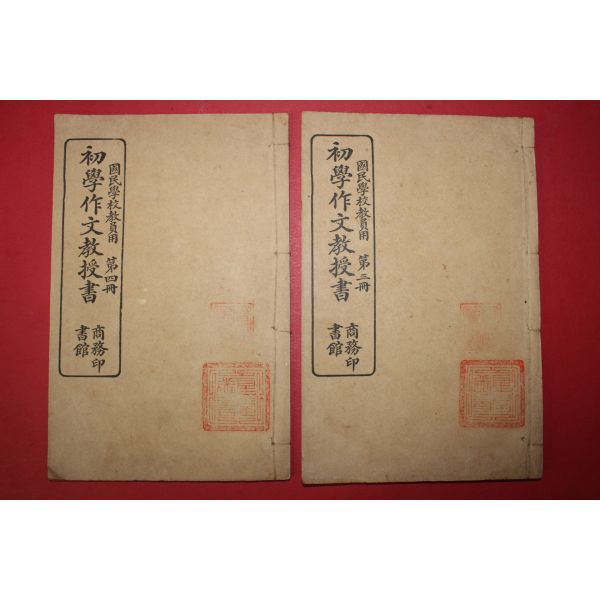 國民學校教員用 第四冊
初學作文教授書
商務印書館
國民學校教員用 第三冊
初學作文教授書
商務印書館